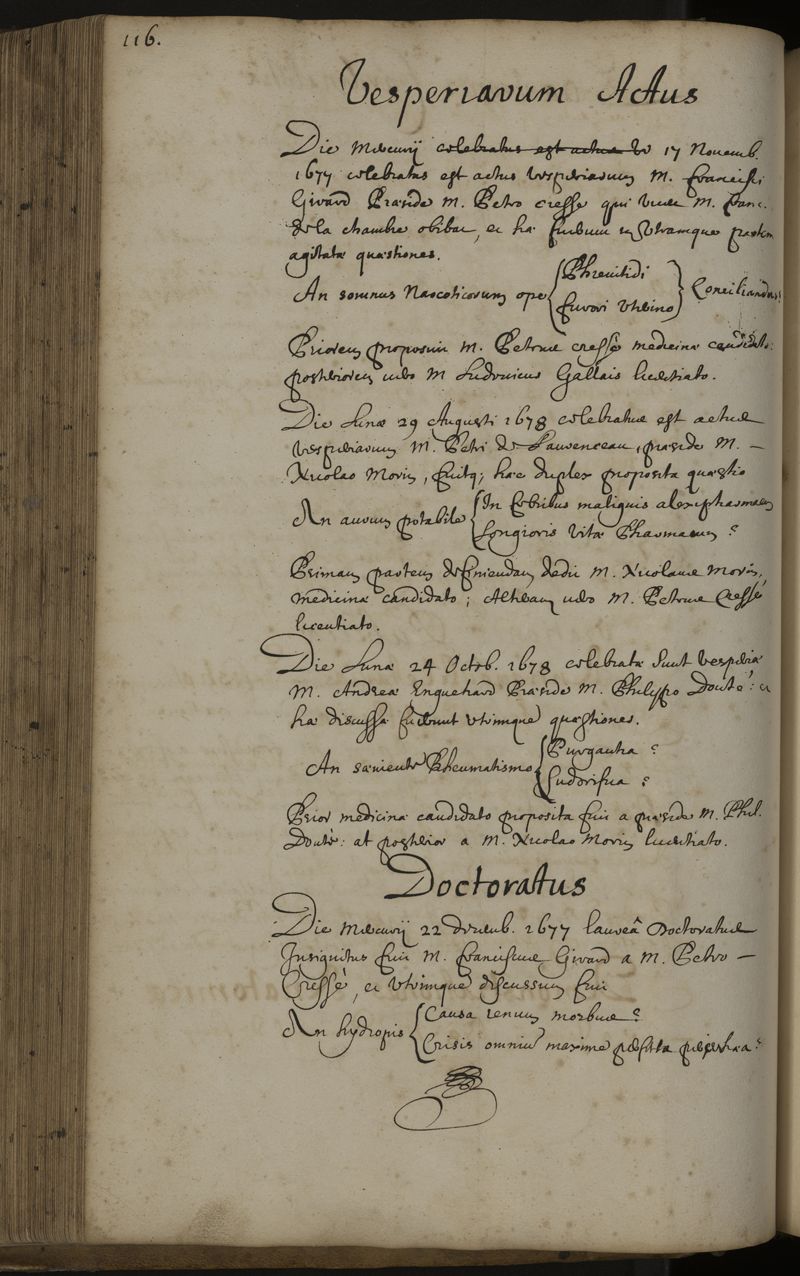 116.
Vesperiarum Actus
Die Mercurij celebratus est actus ve 17 Novemb.
1677 celebratus est actus vesperiarum M. Francisci
Givard Præside M. Petro Cressé qui vicem M. Franc.
de la chambre obibat, et hæ fuerunt in utramque partem
agitatæ quæstiones.
An somnus Narcoticorum ope { Phrenitidi
Furori Uterino } Conciliandus?
Priorem proposuit M. Petrus Cressé medicinæ candidato:
posteriorem vero M Ludovicus Gallais licentiato.
Die Lunæ 29 Augusti 1678 celebratus est actus
Vesperiarum M. Petri de Laurenceau, præside M. –
Nicolao Morin, fuitq; hæc duplex proposita quæstio
An aurum potabile { In febribus malignis alexipharmacum
Longioris vitæ Pharmacum ?
Primam partem definiendam dedit M. Nicolaus Morin,
medicinæ candidato; Alteram vero M. Petrus Cressé
licentiato.
Die Lunæ 24 Octob. 1678 celebratæ sunt vesperiæ
M. Andreæ Enguehard Præside M. Philippo Douté: et
hæ discussæ fuerunt utrimque quæstiones.
An sæviente Rheumatismo { Purgantia ?
Sudorifica ?
Prior medicinæ candidato proposita fuit a præside M. Phil.
Douté: at posterior a M. Nicolao Morin licentiato.
Doctoratus
Die Mercurij 22 Decemb. 1677 laureâ Doctoratus
Insignitus fuit M. Franciscus Givard a M. Petro –
Cressé, et utrimque discussum fuit
An hydropis { Causa renum morbus ?
Crisis omniũ maxime